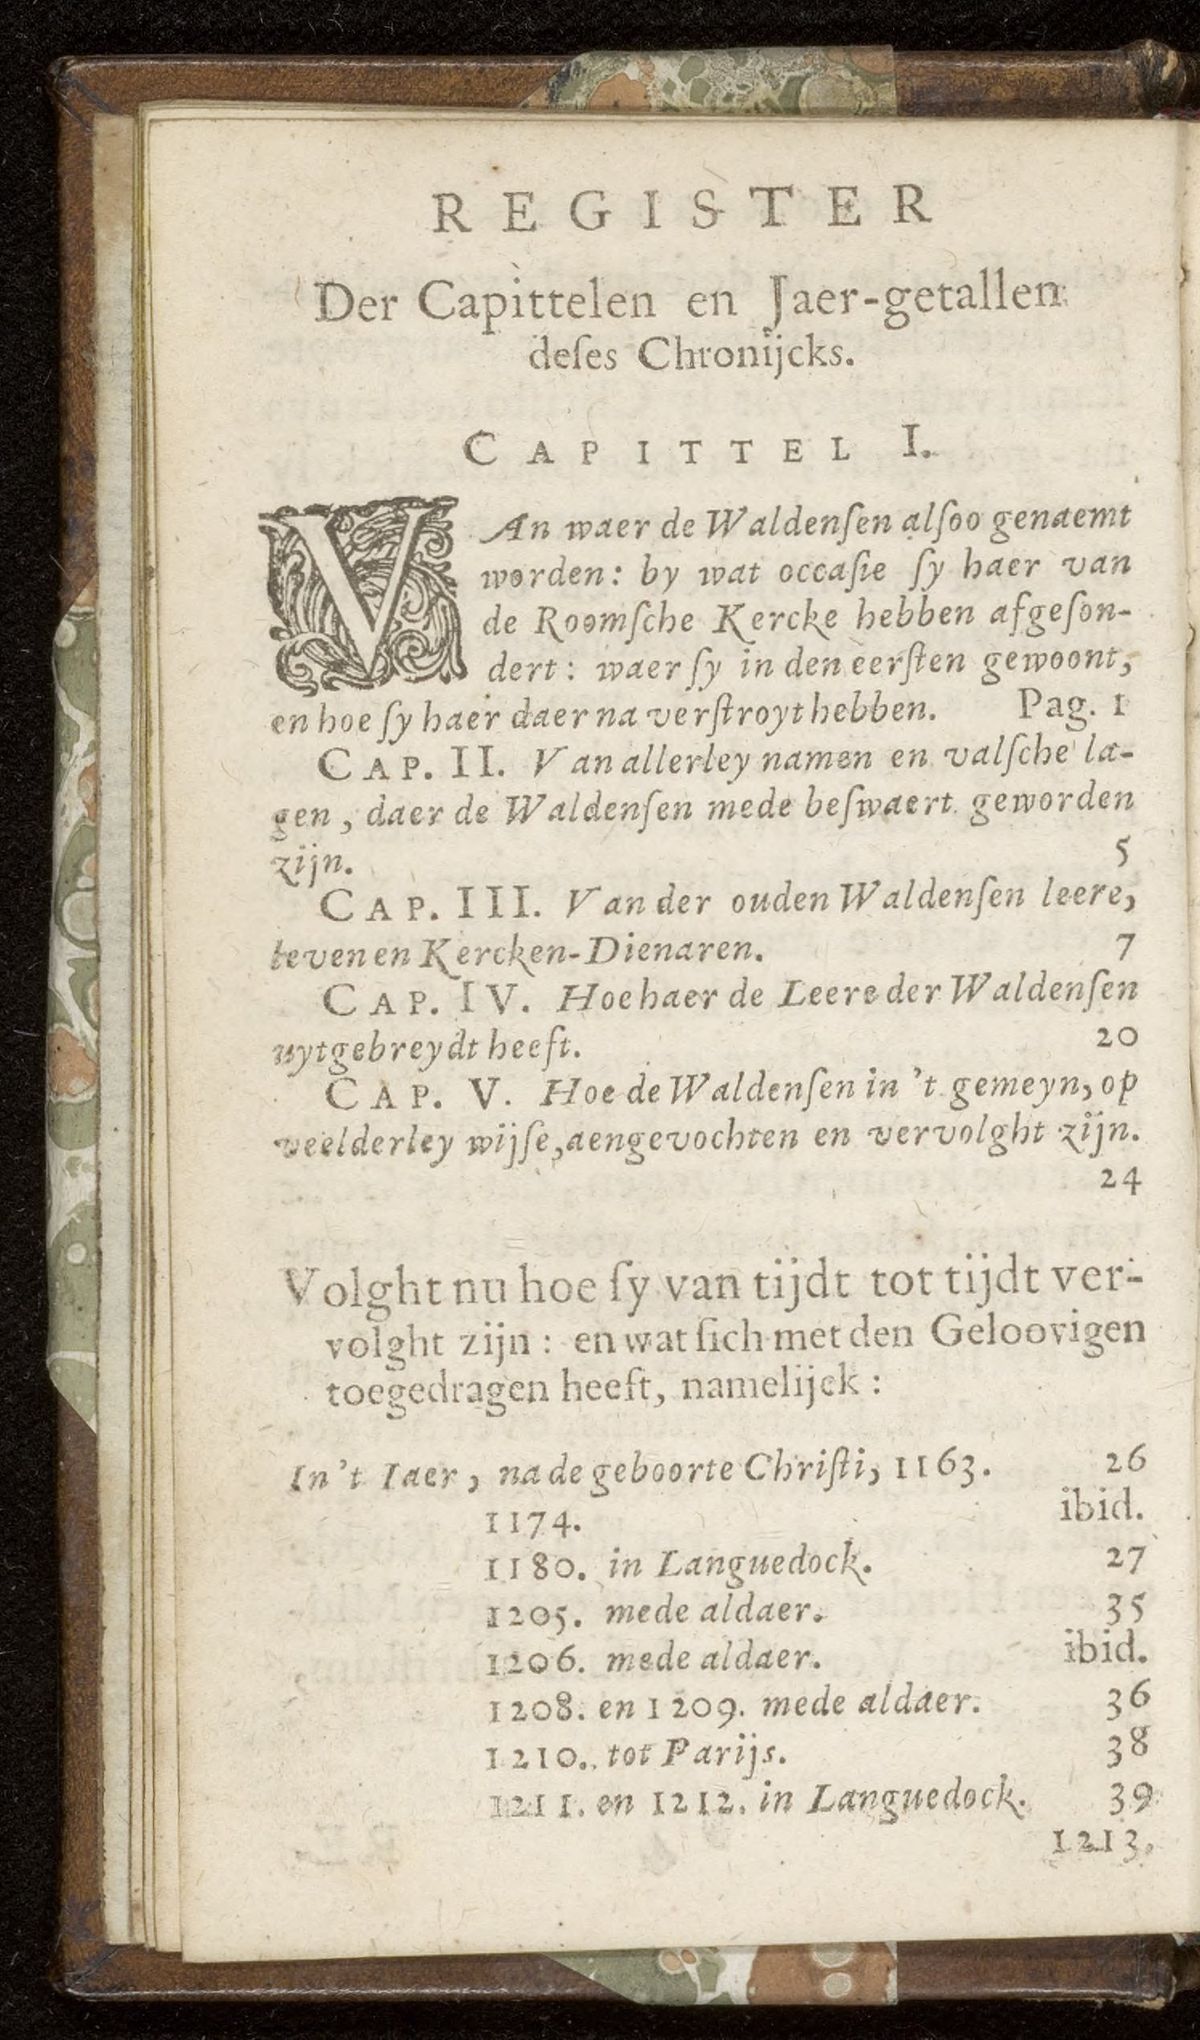 REGISTER
Der Capittelen en Jaer-getallen
deſes Chronijcks.
CAPITTEL I.
VAn waer de Waldenſen alſoo genaemt
worden: by wat occaſie ſy haer van
de Roomſche Kercke hebben afgeſon-
dert: waer ſy in den eerſten gewoont,
en hoe ſy haer daer na verſtroyt hebben. Pag. 1
CAP. II. Van allerley namen en valſche la-
gen, daer de Waldenſen mede beſwaert geworden
zijn. 5
CAP. III. Van der ouden Waldenſen leere,
leven en Kercken-Dienaren. 7
CAP. IV. Hoe haer de Leere der Waldenſen
uytgebreydt heeft. 20
CAP. V. Hoe de Waldenſen in 't gemeyn, op
veelderley wijſe, aengevochten en vervolght zijn.
24
Volght nu hoe ſy van tijdt tot tijdt ver-
volght zijn: en wat ſich met den Geloovigen
toegedragen heeft, namelijck:
In 't Iaer, na de geboorte Chriſti, 1163. 26
1174. ibid.
1180. in Languedock. 27
1205. mede aldaer. 35
1206. mede aldaer. ibid.
1208. en 1209. mede aldaer. 36
1210. tot Parijs. 38
1211. en 1212. in Languedock. 39
1213.